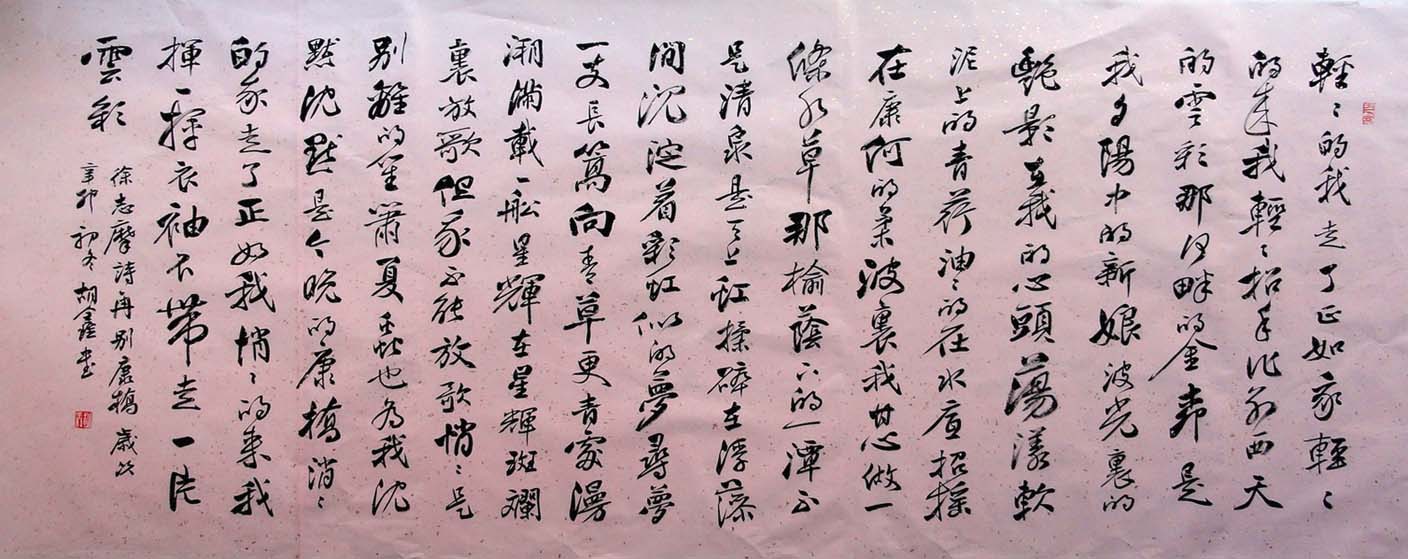 輕〻的我走了正如我輕〻
的来我輕〻招手作别西天
的雲彩那河畔的金柳是
我夕陽中的新娘波光裏的
艷影在我的心頭蕩漾軟
泥上的青荇油〻的在水底招摇
在康河的柔波裏我甘心做一
條水草那榆蔭下的一潭不
是清泉是天上虹揉碎在浮藻
間沉淀着彩虹似的夢尋夢
一支長篙向青草更青處漫
溯滿載一船星輝在星輝斑斕
裏放歌但我不能放歌悄〻是
别離的笙簫夏蟲也為我沈
默沈默是今晚的康橋悄〻
的我走了正如我悄〻的来我
揮一揮衣袖不帶走一片
雲彩
徐志摩詩再别康橋歲次
辛卯初冬胡鑫书